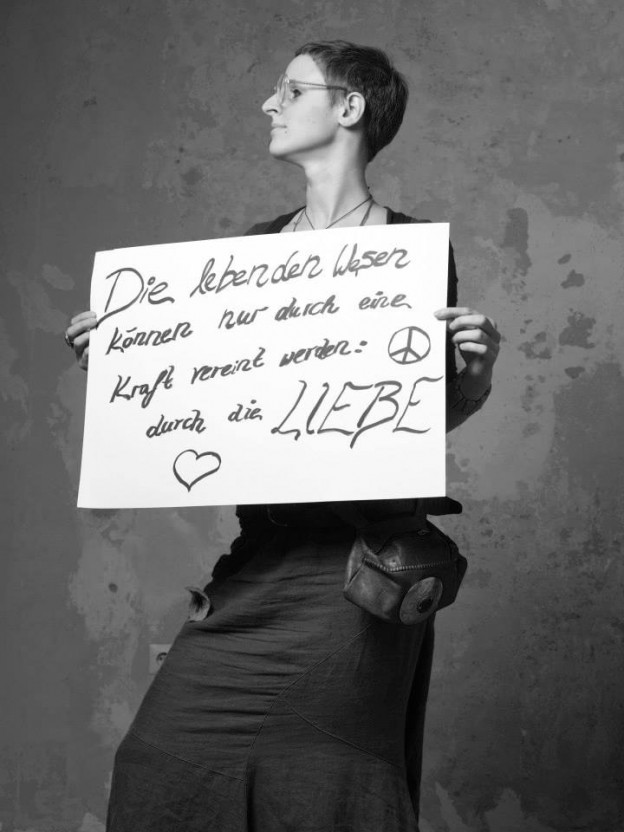 Die lebenden Wesen
können nur durch eine
Kraft vereint werden:
durch die LIEBE